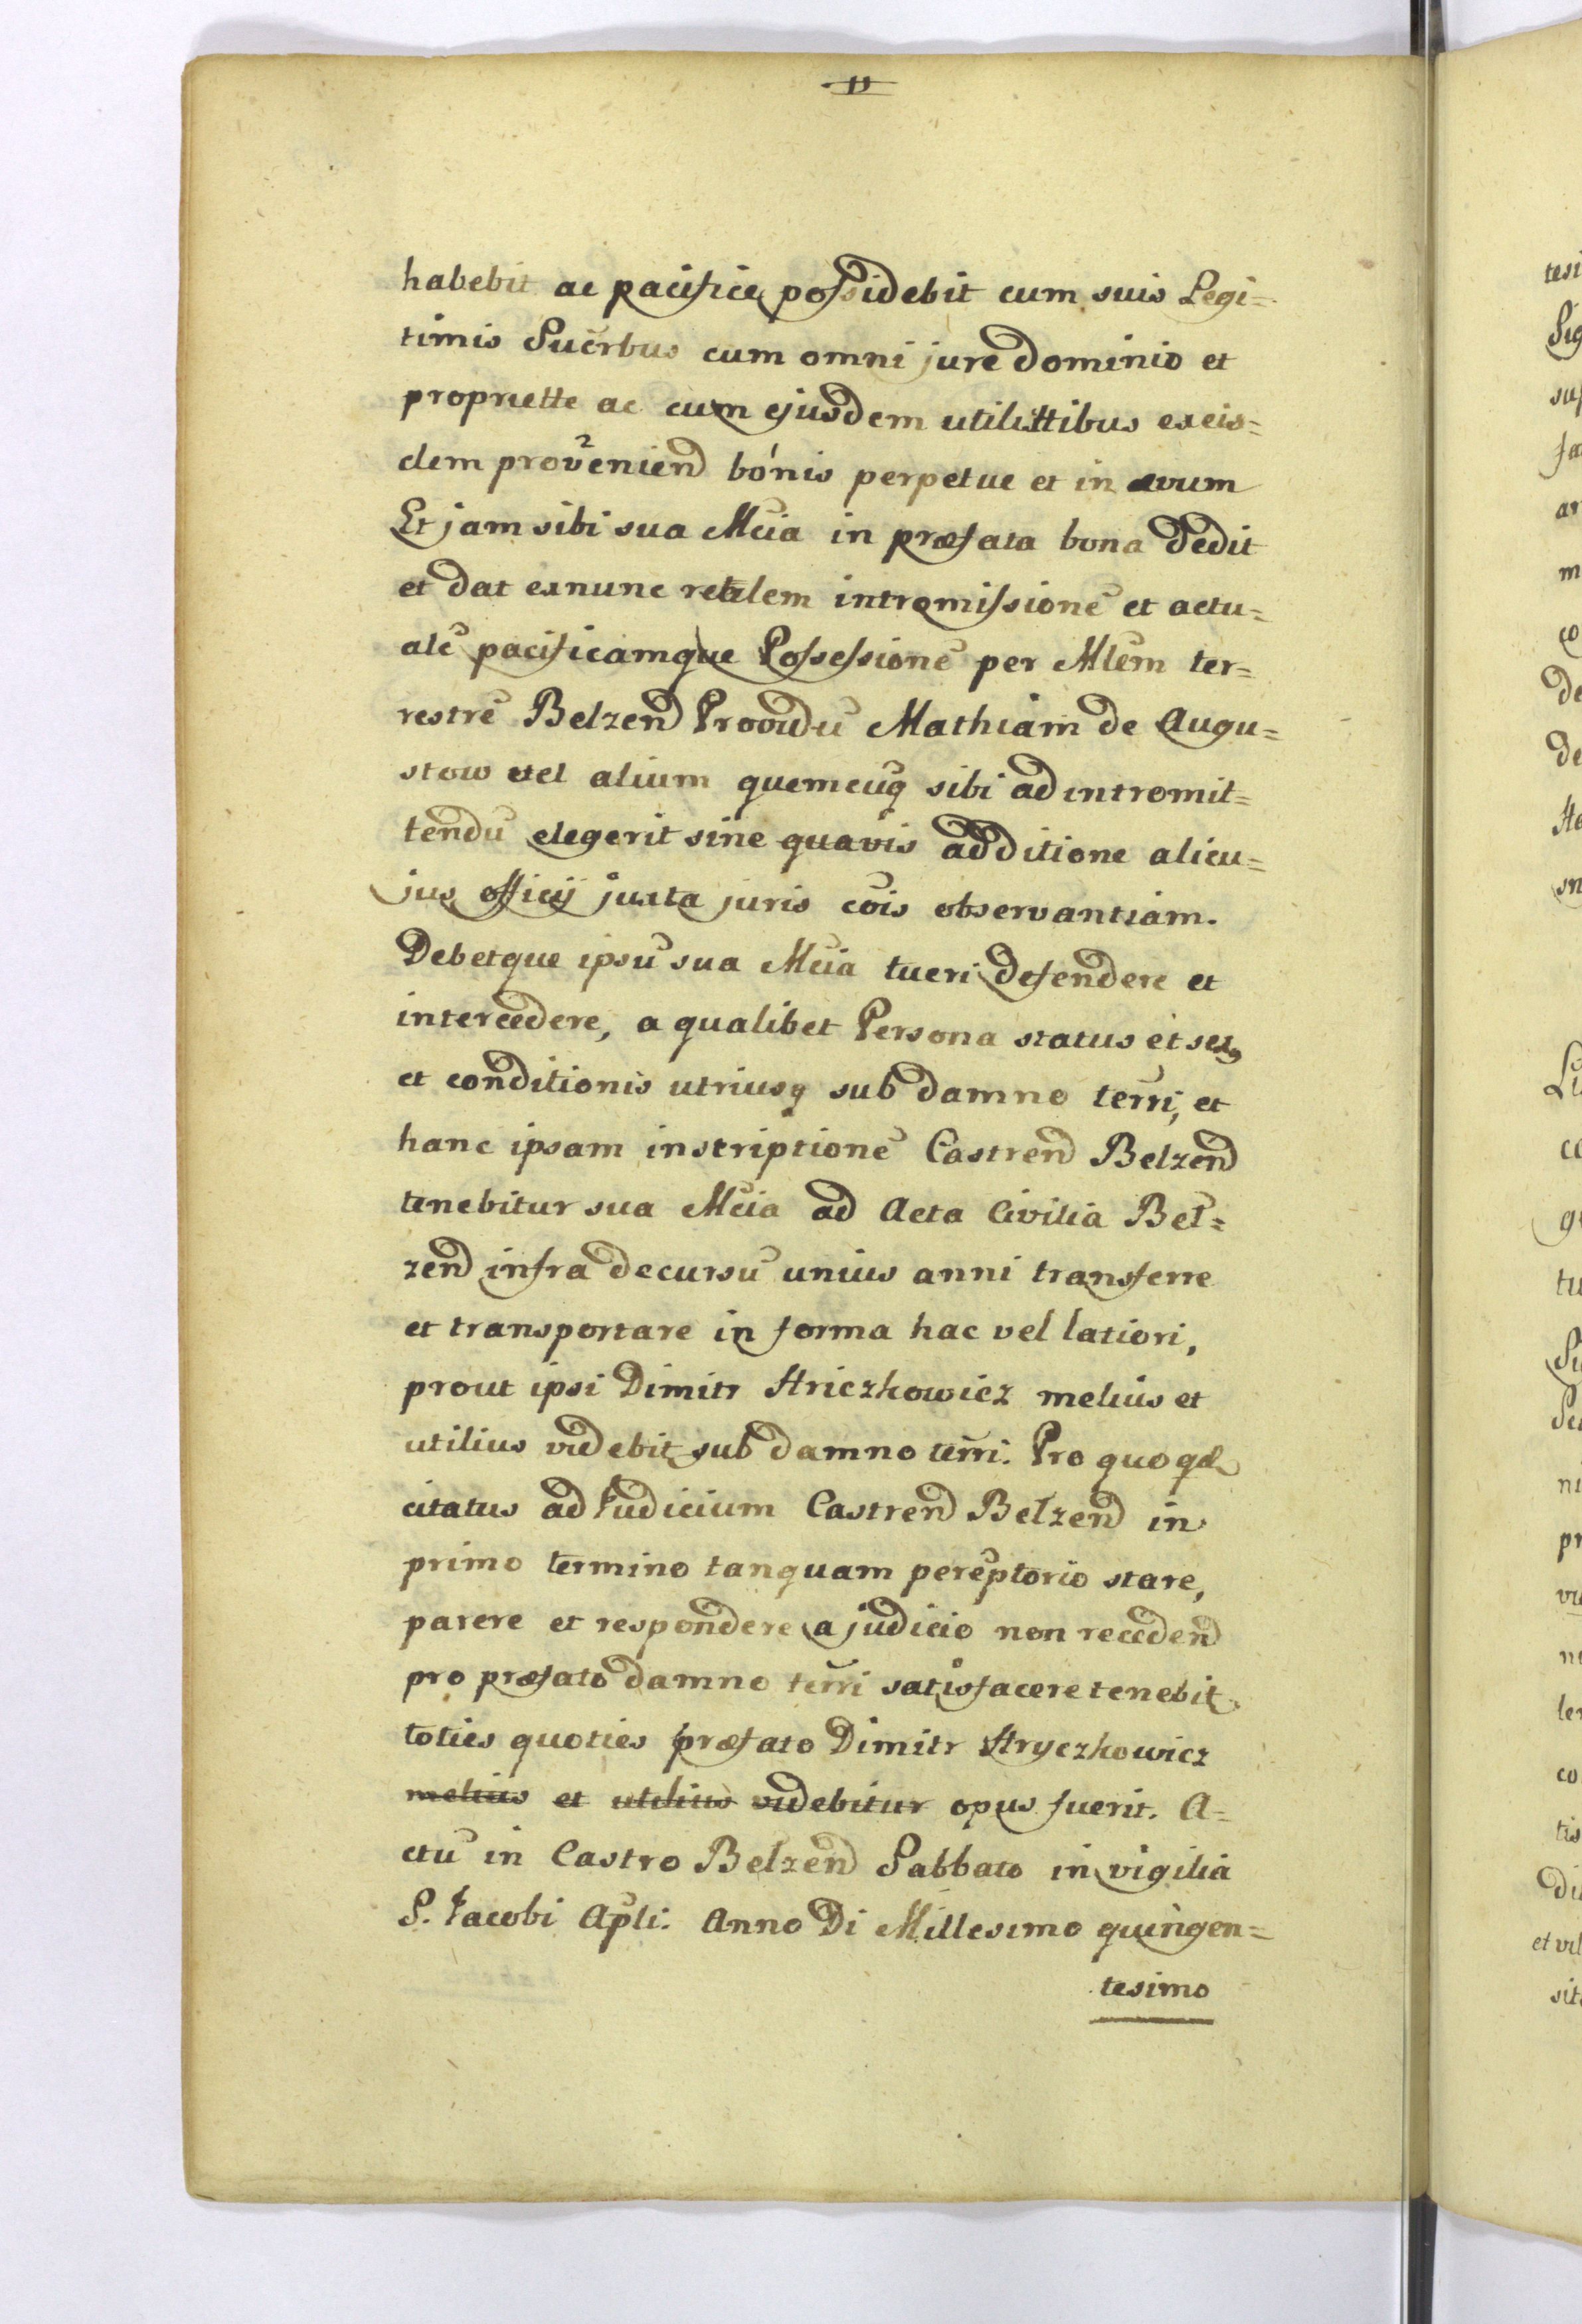 habebit ac pacifice possidebit cum suis Legi=
timis Sucrbus cum omni jure dominio et
propriette ac cum ejusdem utilittibus exeis=
dem provenien bonis perpetue et in ævum
Et jam sibi sua Mcia in præfata bona dedit
et dat exnunc realem intromissionē et actu=
alē pacificamque Possessionē per Mlem ter=
restrē Belzen Provdū Mathiam de Augu=
stow vel alium quemcuq sibi ad intromit=
tendū elegerit sine quavis additione alicu=
jus officij juxta juris cois observantiam.
Debetque ipsū sua Mcia tueri defendere et
intercedere, a qualibet Persona status et sex
et conditionis utriusq sub damno terri, et
hanc ipsam inscriptionē Castren Belzen
tenebitur sua Mcia ad Acta Civilia Bel=
zen infra decursū unius anni transferre
et transportare in forma hac vel latiori,
prout ipsi Dimitr Striczkowicz melius et
utilius videbit sub damno terri. Pro quo qdē
citatus ad Iudicium Castren Belzen in
primo termino tanquam pereptorio stare,
parere et respondere a judicio non receden
pro præfato damno terri satisfacere tenebit
toties quoties præfato Dimitr Stryczkowicz
melius et utilius videbitur opus fuerit. A=
ctū in Castro Belzen Sabbato in vigilia
S. Iacobi Apli. Anno Di Millesimo quingen=
tesimo